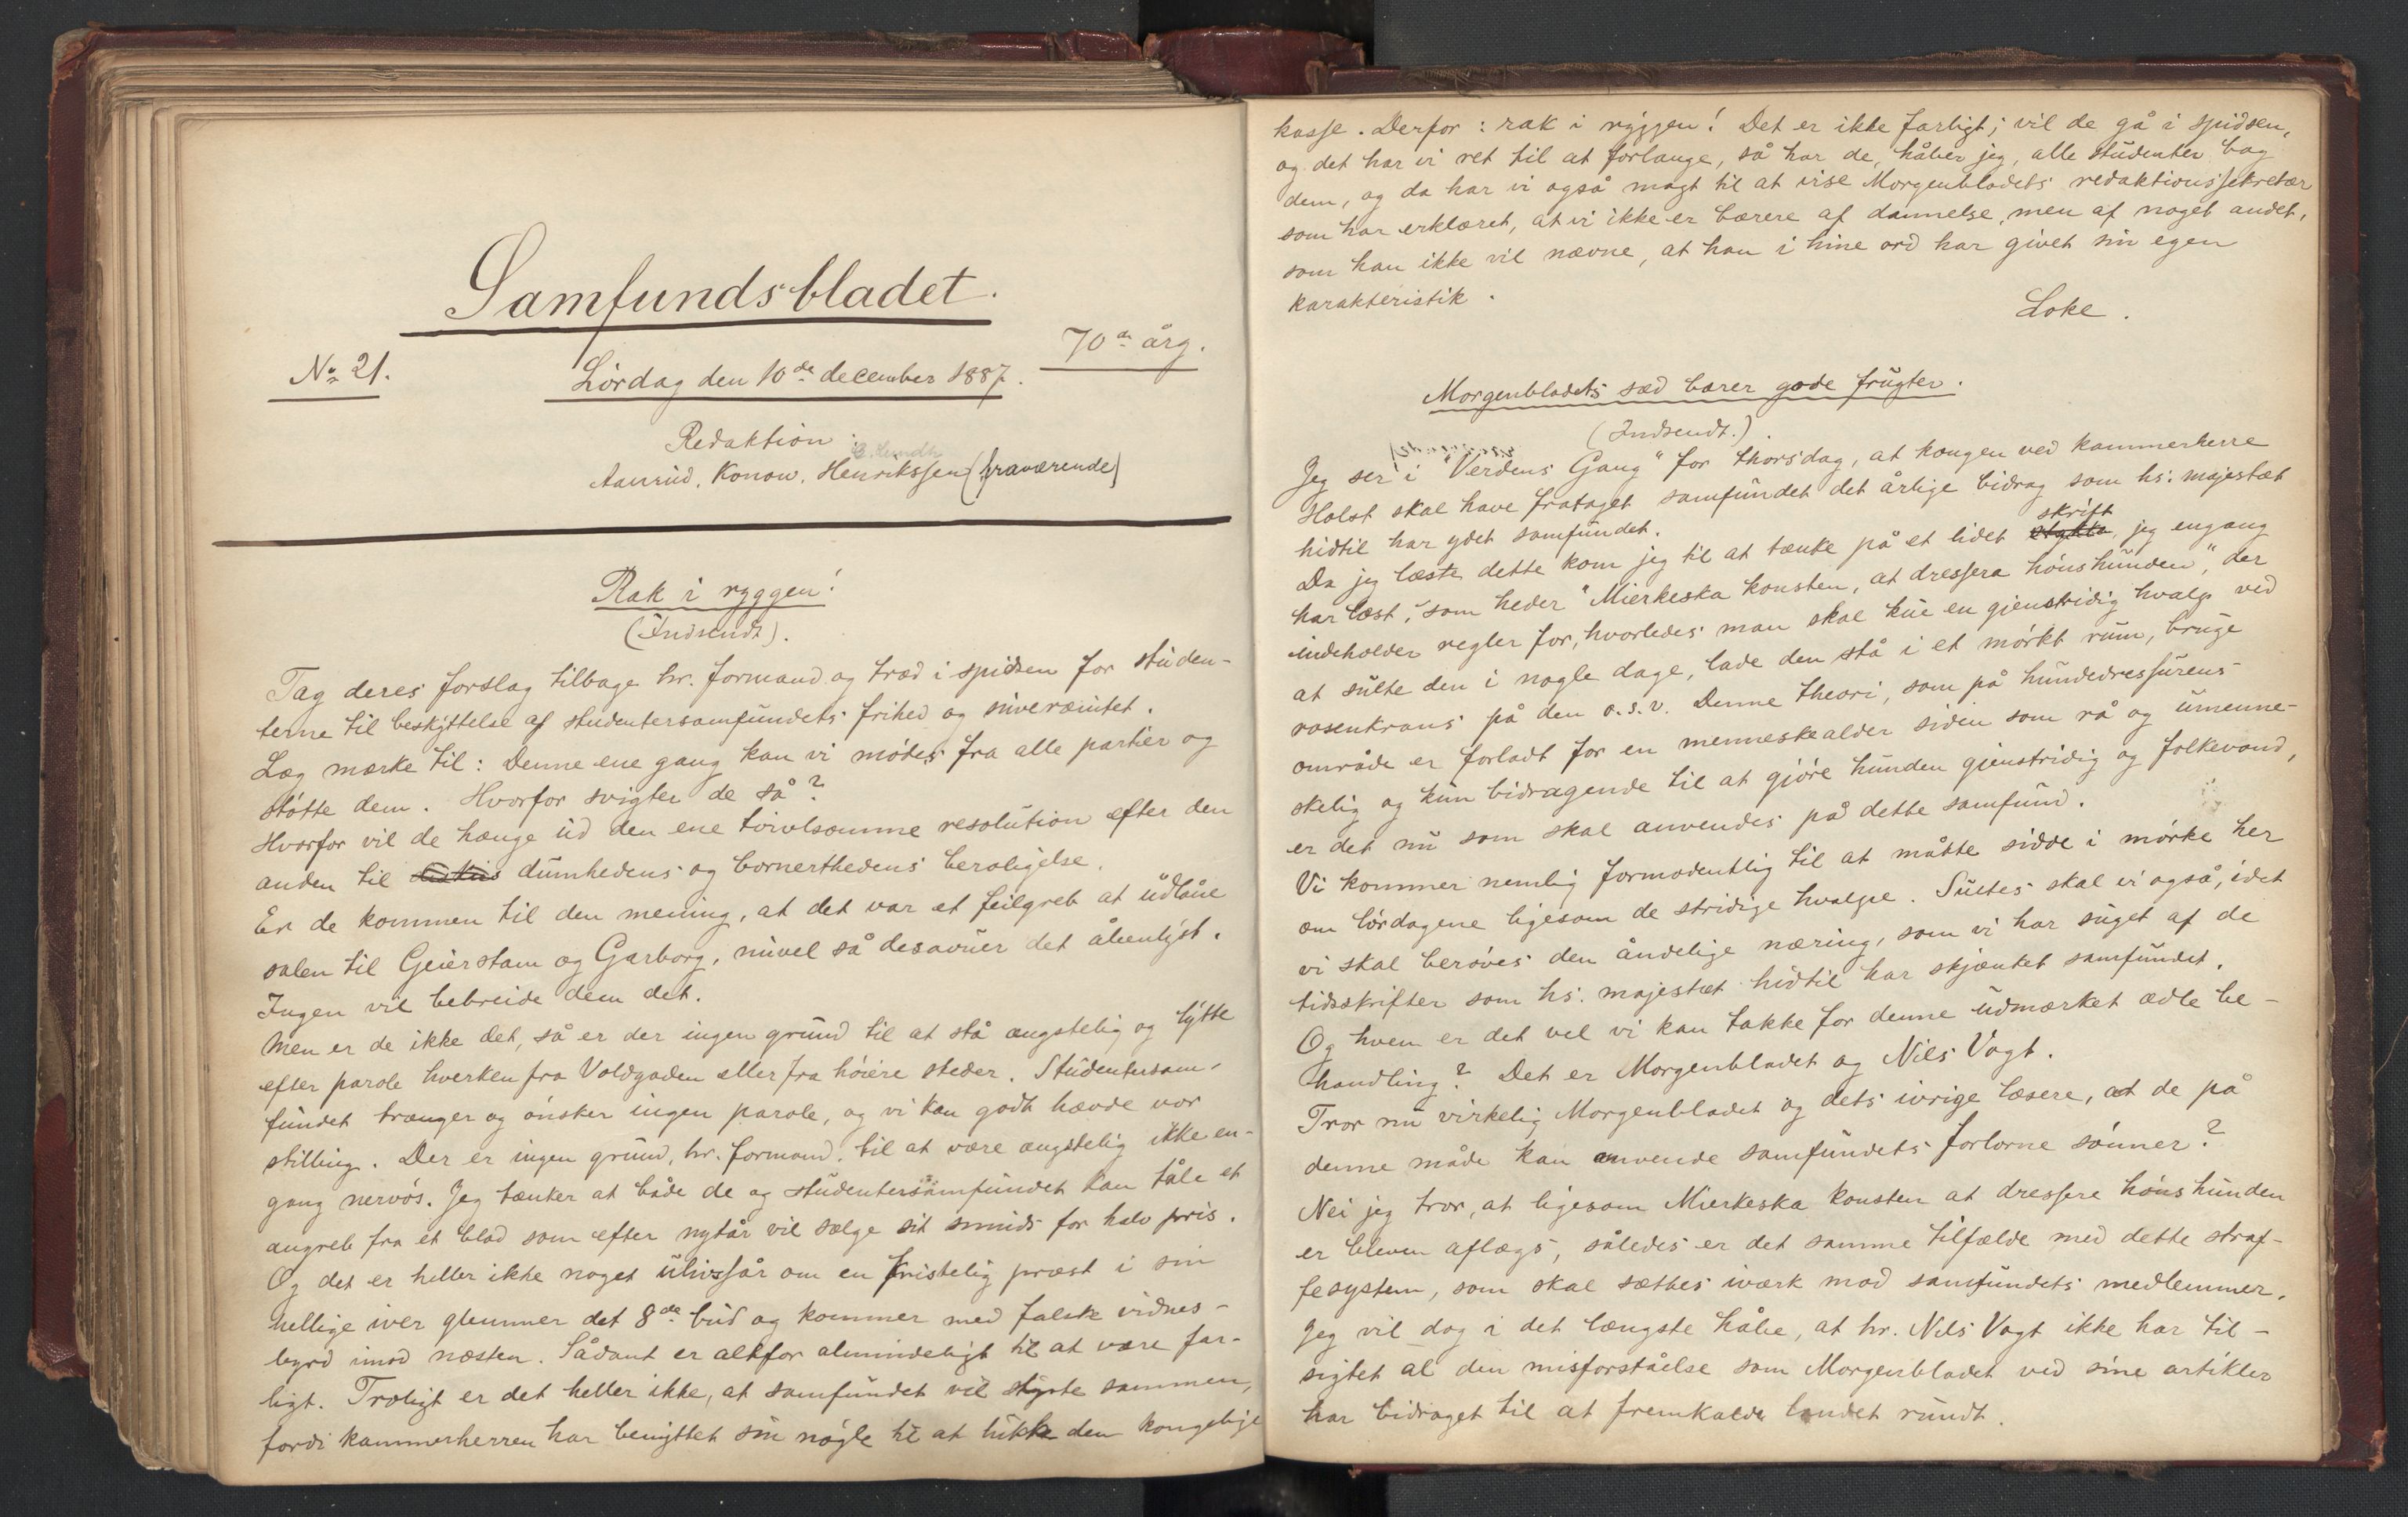 Samfundsbladet.
70de årg.
No 21.
Lördag den 10de december 1887.
Redaktion:
Aanrud. Konow. Henrikssen (fraværende)
Rak i ryggen!
(Indsendt).
Tag deres forslag tilbage hr. formand og træd i spidsen for studen-
terne til beskyttelse af studentersamfundets frihed og suverænitet.
Læg mærke til: Denne ene gang kan vi mödes fra alle partier og
stötte dem. Hvorfor svigter de så?
Hvorfor vil de hænge ud den ene tvivlsomme resolution efter den
anden til dumhedens og bornerthedens beroligelse.
Er de kommen til den mening, at det var et feilgreb at udlåne
salen til Geierstam og Garborg, nuvel så desavuer det åbenlyst.
Ingen vil bebreide dem det.
Men er de ikke det, så er der ingen grund til at stå ængstelig og lytte
efter parole hverken fra Voldgaden eller fra höiere steder. Studentersam-
fundet trænger og önsker ingen parole, og vi kan godt hævde vor
stilling. Der er ingen grund, hr. formand, til at være ængstelig ikke en-
gang nervös. Jeg tænker at både de og studentersamfundet kan tåle et
angreb fra et blad som efter nytår vil sælge sit smuds for halv pris.
Og det er heller ikke noget ulivssår om en kristelig præst i sin
hellige iver glemmer det 8de bud og kommer med falsk vidnes-
byrd imod næsten. Sådant er altfor almindeligt til at være far-
ligt. Troligt er det heller ikke, at samfundet vil styrte sammen,
fordi kammerherren har benyttet sin nögle til at lukke den kongelige
kasse. Derfor: rak i ryggen! Det er ikke farligt; vil de gå i spidsen,
og det har vi ret til at forlange, så har de, håber jeg, alle studenter bag
dem, og da har vi også magt til at vise Morgenbladets redaktionssekretær
som har erklæret, at vi ikke er bærere af dannelse, men af noget andet,
som han ikke vil nævne, at han i hine ord har givet sin egen
karakteristik.
Loke.
Morgenbladets sæd bærer gode frugter.
(Indsendt.).
Jeg ser i "Verdens Gang" for thorsdag, at kongen ved kammerherre
Holst skal have frataget samfundet det årlige bidrag som hs. majestæt
hidtil har ydet samfundet.
Da jeg læste dette kom jeg til at tænke på et lidet stykke skrift, jeg engang
har læst, som heder "Mierkeska konsten, at dressera hönshunden", der
indeholder regler for, hvorledes man skal kue en gjenstridig hvalp ved
at sulte den i nogle dage, lade den stå i et mörkt rum, bruge
rosenkrans på den o.s.v. Denne theori, som på hundedressurens
område er forladt for en menneskealder siden som rå og umenne-
skelig og kun bidragende til at gjöre hunden gjenstridig og folkevond,
er det nu som skal anvendes på dette samfund.
Vi kommer nemlig formodentlig til at måtte sidde i mörke her
om lördagene ligesom de stridige hvalpe. Sultes skal vi også, idet
vi skal beröves den åndelige næring, som vi har suget af de
tidsskrifter som hs. majestæt hidtil har skjænket samfundet.
Og hvem er det vel vi kan takke for denne udmærket ædle be-
handling? Det er Morgenbladet og Nils Vogt.
Tror nu virkelig Morgenbladet og dets ivrige læsere, at de på
denne måde kan omvende samfundets forlorne sönner?
Nei jeg tror, at ligesom Mierkeska konsten at dressere hönshunden
er bleven aflægs, således er det samme tilfælde med dette straf-
fesystem, som skal sættes iværk mod samfundets medlemmer.
Jeg vil dog i det længste håbe, at hr. Nils Vogt ikke har til-
sigtet al den misforståelse som Morgenbladet ved sine artikler
har bidraget til at fremkalde landet rundt.